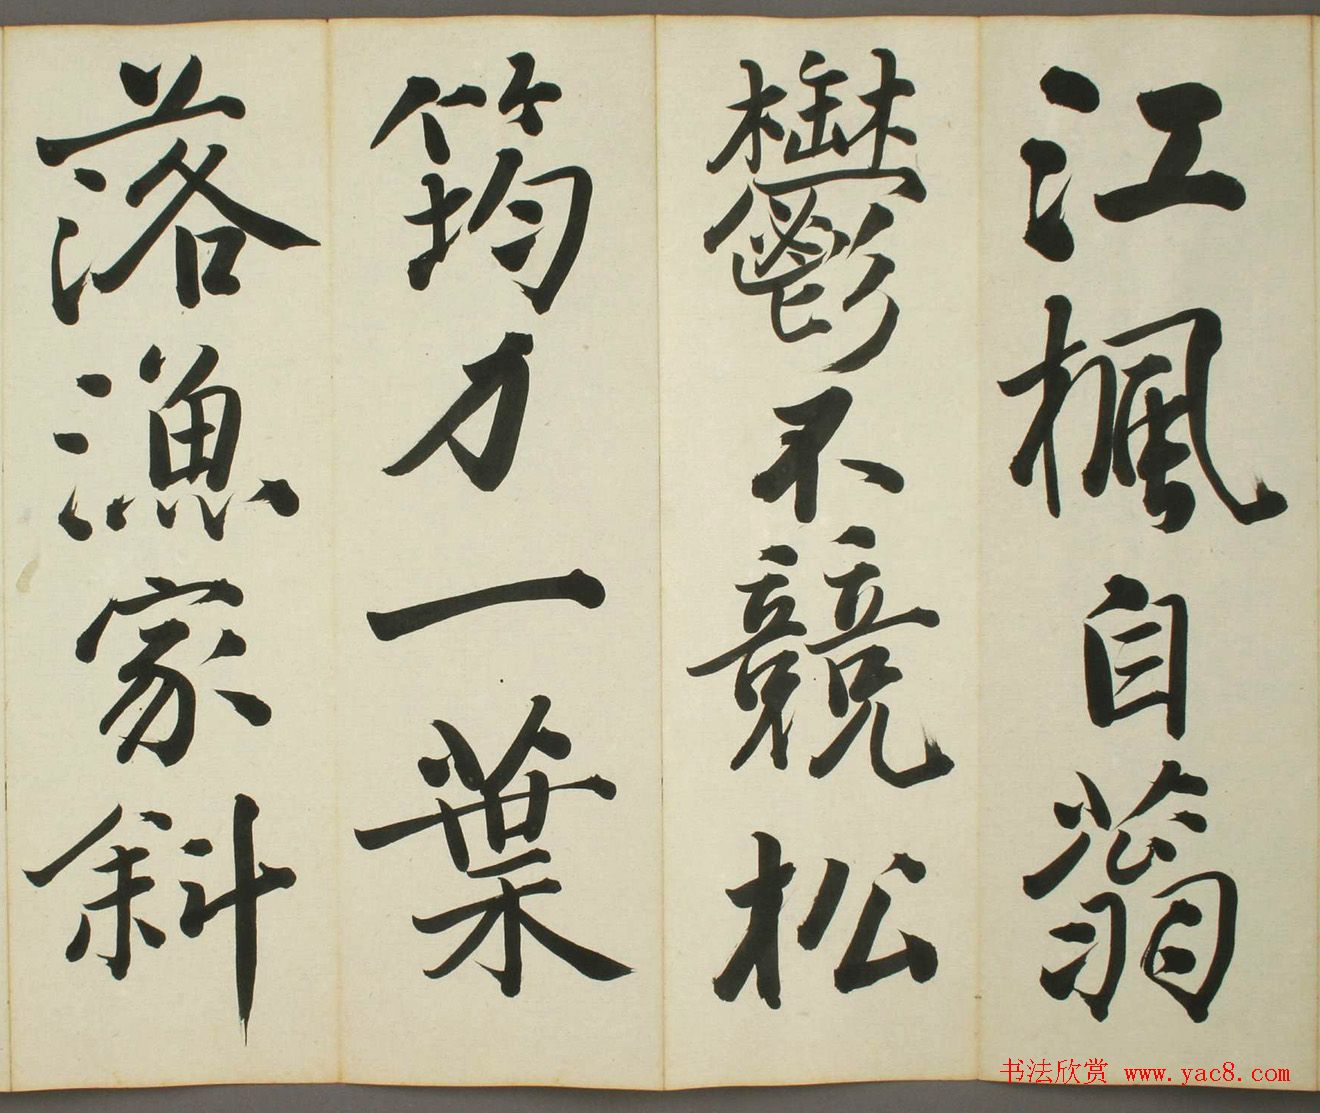 江楓自蓊
鬱不競松
筠力一葉
落漁家斜
书法欣赏 www.yac8.com